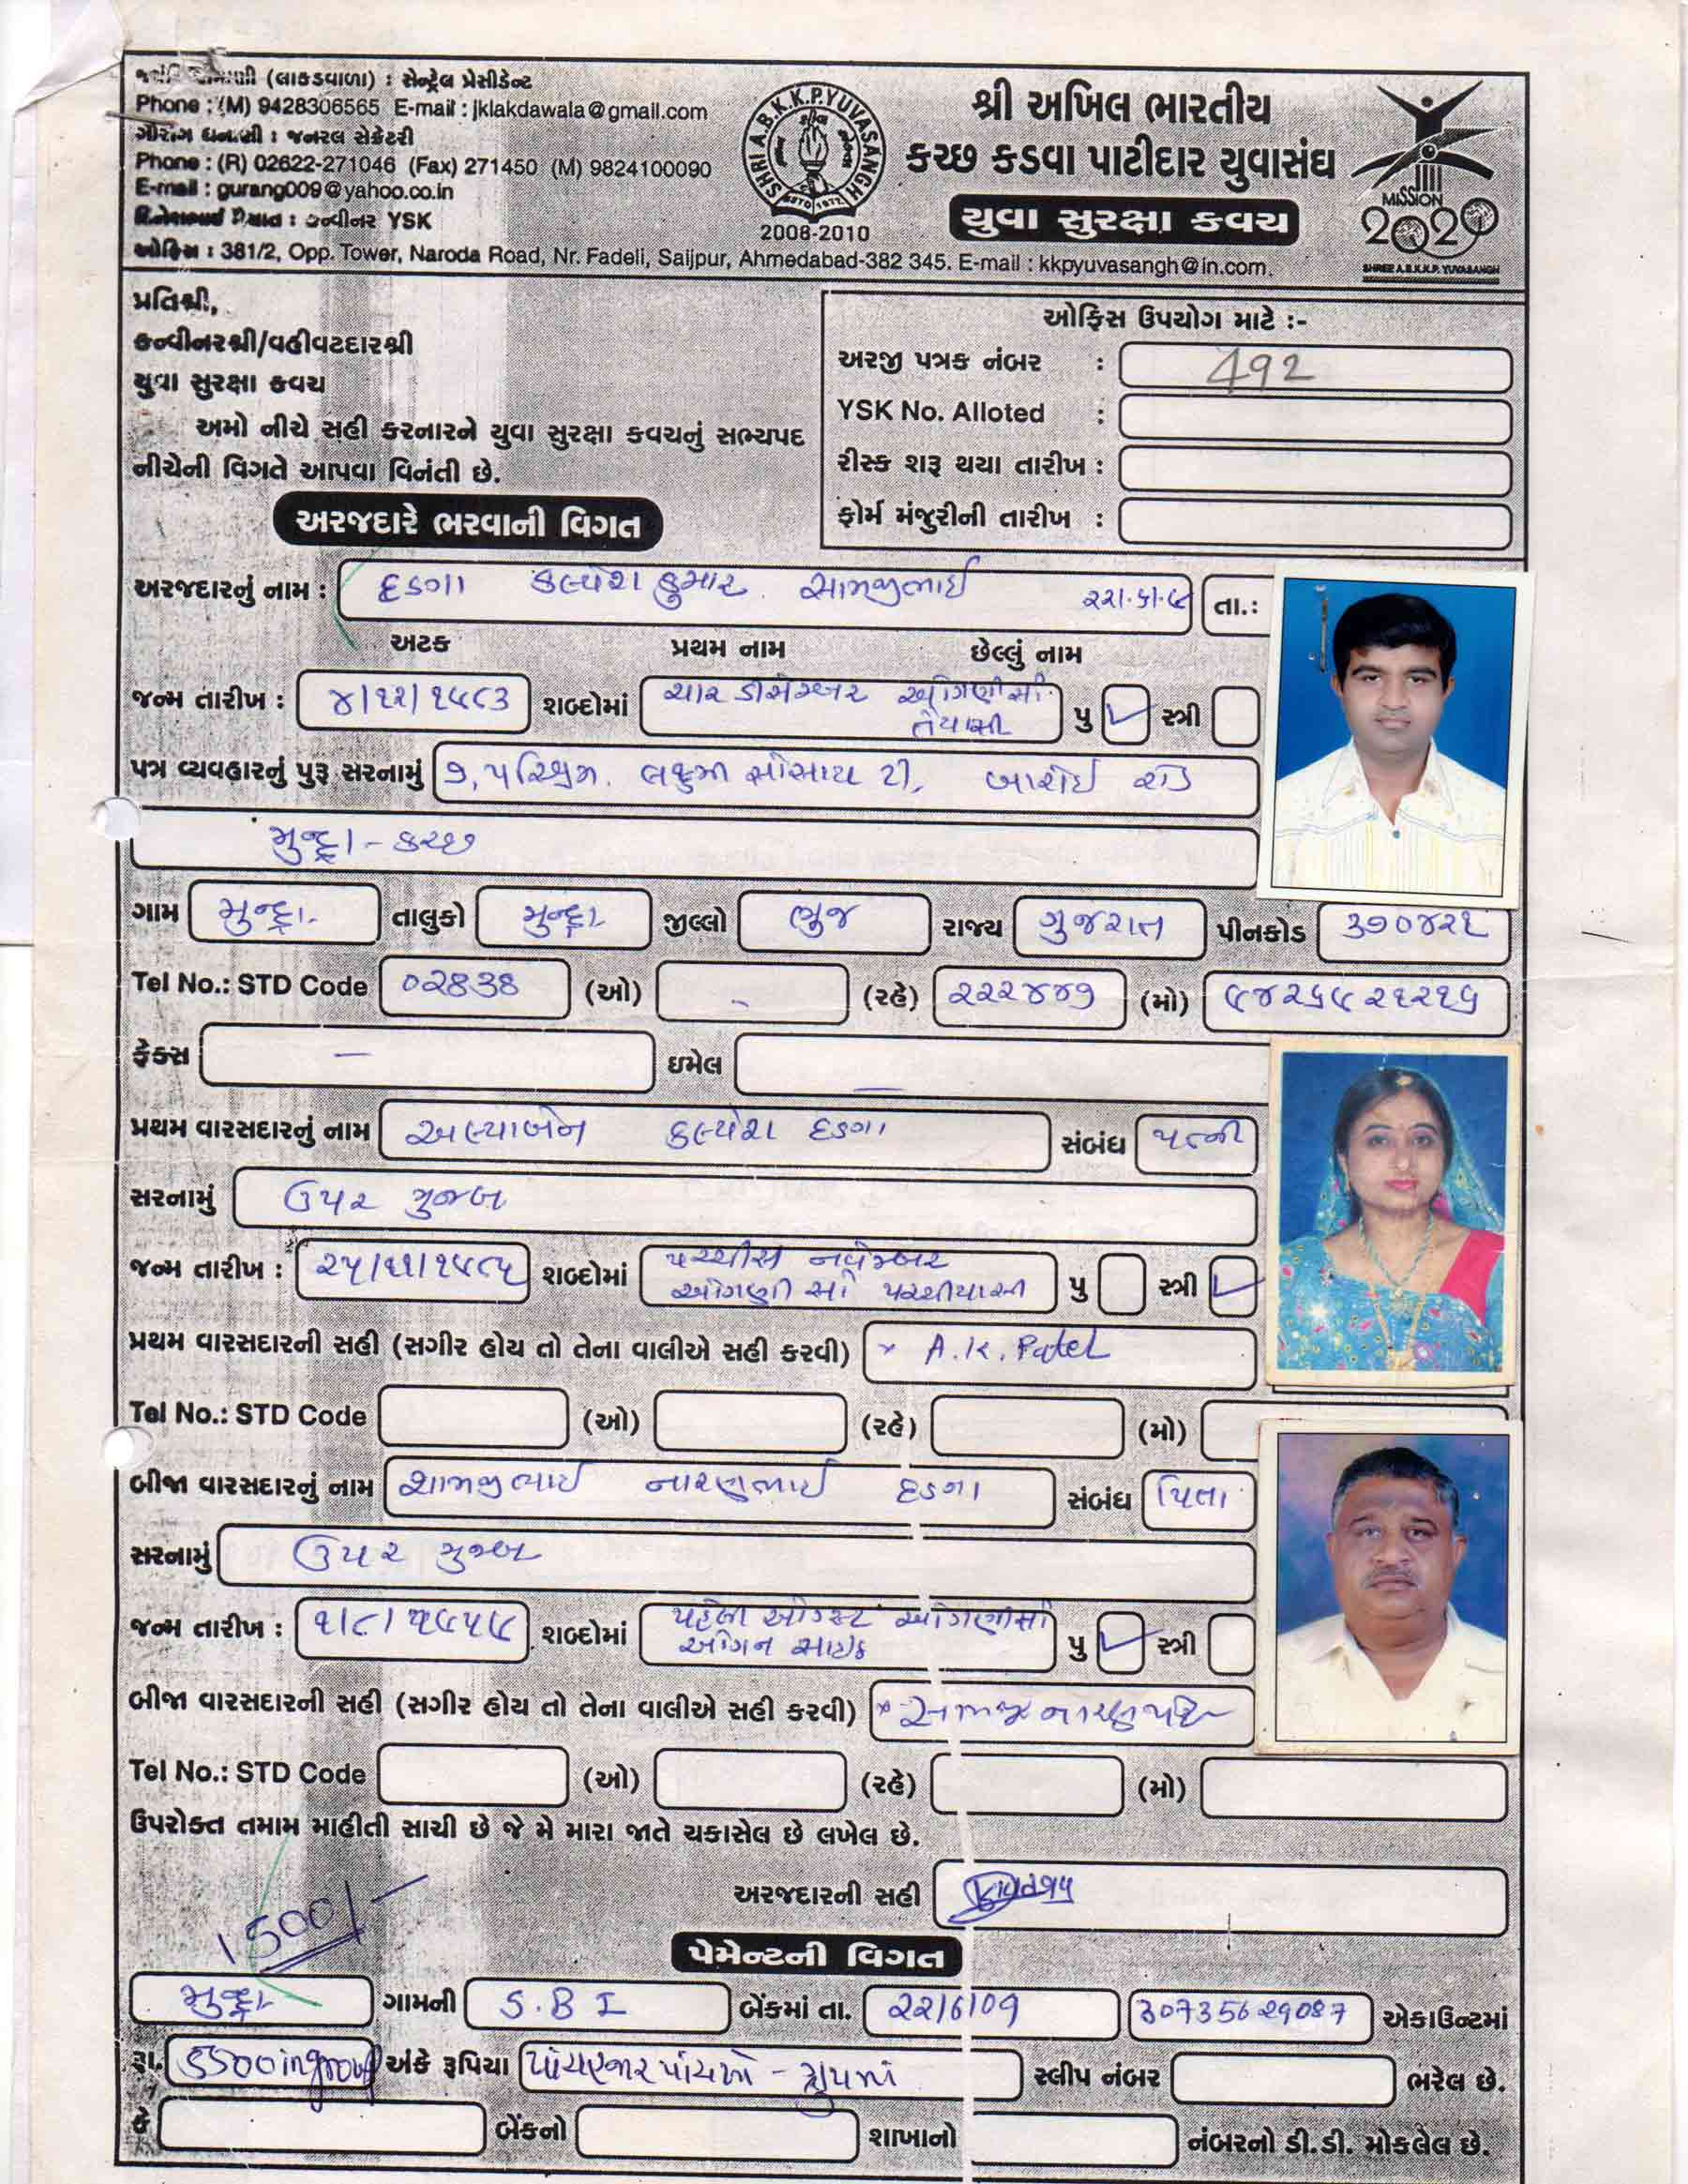 (લાકડાવાળા) : સેન્ટ્રેલ પ્રેસીડેન્ટ
Phone : (M) 9428306565 E-mail : jklakdawala@gmail.com
ગૌરાંગ ધનાણી : જનરલ સેક્રેટરી
Phone : (R) 02622-271046 (Fax) 271450 (M) 9824100090
E-mail : gurang009@yahoo.co.in
કન્વીનર YSK
ઓફિસ : 381/2, Opp. Tower, Naroda Road, Nr. Fadeli, Saijpur, Ahmedabad-382 345. E-mail : kkpyuvasangh@in.com.
SHRI A.B.K.K.P. YUVASANGH
ESTD 1977
2008-2010
શ્રી અખિલ ભારતીય
કચ્છ કડવા પાટીદાર યુવાસંઘ
યુવા સુરક્ષા કવચ
MISSION
2020
SHREE A.B.K.K.P. YUVASANGH
પ્રતિશ્રી,
કન્વીનરશ્રી/વહીવટદારશ્રી
યુવા સુરક્ષા કવચ
અમો નીચે સહી કરનારને યુવા સુરક્ષા કવચનું સભ્યપદ
નીચેની વિગતે આપવા વિનંતી છે.
ઓફિસ ઉપયોગ માટે :-
અરજી પત્રક નંબર : 492
YSK No. Alloted :
રીસ્ક શરૂ થયા તારીખ :
ફોર્મ મંજુરીની તારીખ :
અરજદારે ભરવાની વિગત
અરજદારનું નામ : દડગા કલ્પેશકુમાર સામજીભાઈ તા.:
અટક પ્રથમ નામ છેલ્લું નામ
જન્મ તારીખ : ૪/૧૨/૧૯૮૩ શબ્દોમાં ચાર ડીસેમ્બર ઓગણીસો તેયાસી પુ સ્ત્રી
પત્ર વ્યવહારનું પુરૂ સરનામું ૭, પરિશ્રમ. લક્ષ્મી સોસાયટી, બારોઈ રોડ
મુન્દ્રા - કચ્છ
ગામ મુન્દ્રા. તાલુકો મુન્દ્રા જીલ્લો ભુજ રાજ્ય ગુજરાત પીનકોડ ૩૭૦૪૨૧
Tel No.: STD Code 02838 (ઓ) - (રહે) ૨૨૨૪૪૭ (મો) ૯૪૨૬૯૨૧૨૧૬
ફેક્સ — ઇમેલ —
પ્રથમ વારસદારનું નામ અલ્પાબેન કલ્પેશ દડગા સંબંધ પત્ની
સરનામું ઉપર મુજબ
જન્મ તારીખ : ૨૫/૧૧/૧૯૮૫ શબ્દોમાં પચ્ચીસ નવેમ્બર ઓગણીસો પંચીયાસી પુ સ્ત્રી
પ્રથમ વારસદારની સહી (સગીર હોય તો તેના વાલીએ સહી કરવી) × A.K. Patel
Tel No.: STD Code (ઓ) (રહે) (મો)
બીજા વારસદારનું નામ શામજીભાઈ નારણભાઈ દડગા સંબંધ પિતા
સરનામું ઉપર મુજબ
જન્મ તારીખ : ૧/૮/૧૯૫૯ શબ્દોમાં પહેલી ઓગસ્ટ ઓગણીસો ઓગન સાઇઠ પુ સ્ત્રી
બીજા વારસદારની સહી (સગીર હોય તો તેના વાલીએ સહી કરવી) ×
Tel No.: STD Code (ઓ) (રહે) (મો)
ઉપરોક્ત તમામ માહીતી સાચી છે જે મે મારા જાતે ચકાસેલ છે લખેલ છે.
અરજદારની સહી
1500/-
પેમેન્ટની વિગત
મુન્દ્રા ગામની S.B I બેંકમાં તા. 22/6/09 30735629087 એકાઉન્ટમાં
રૂા. 5500 in group અંકે રૂપિયા પાંચહજાર પાંચસો - ગ્રુપમાં સ્લીપ નંબર ભરેલ છે.
કે બેંકનો શાખાનો નંબરનો ડી.ડી. મોકલેલ છે.